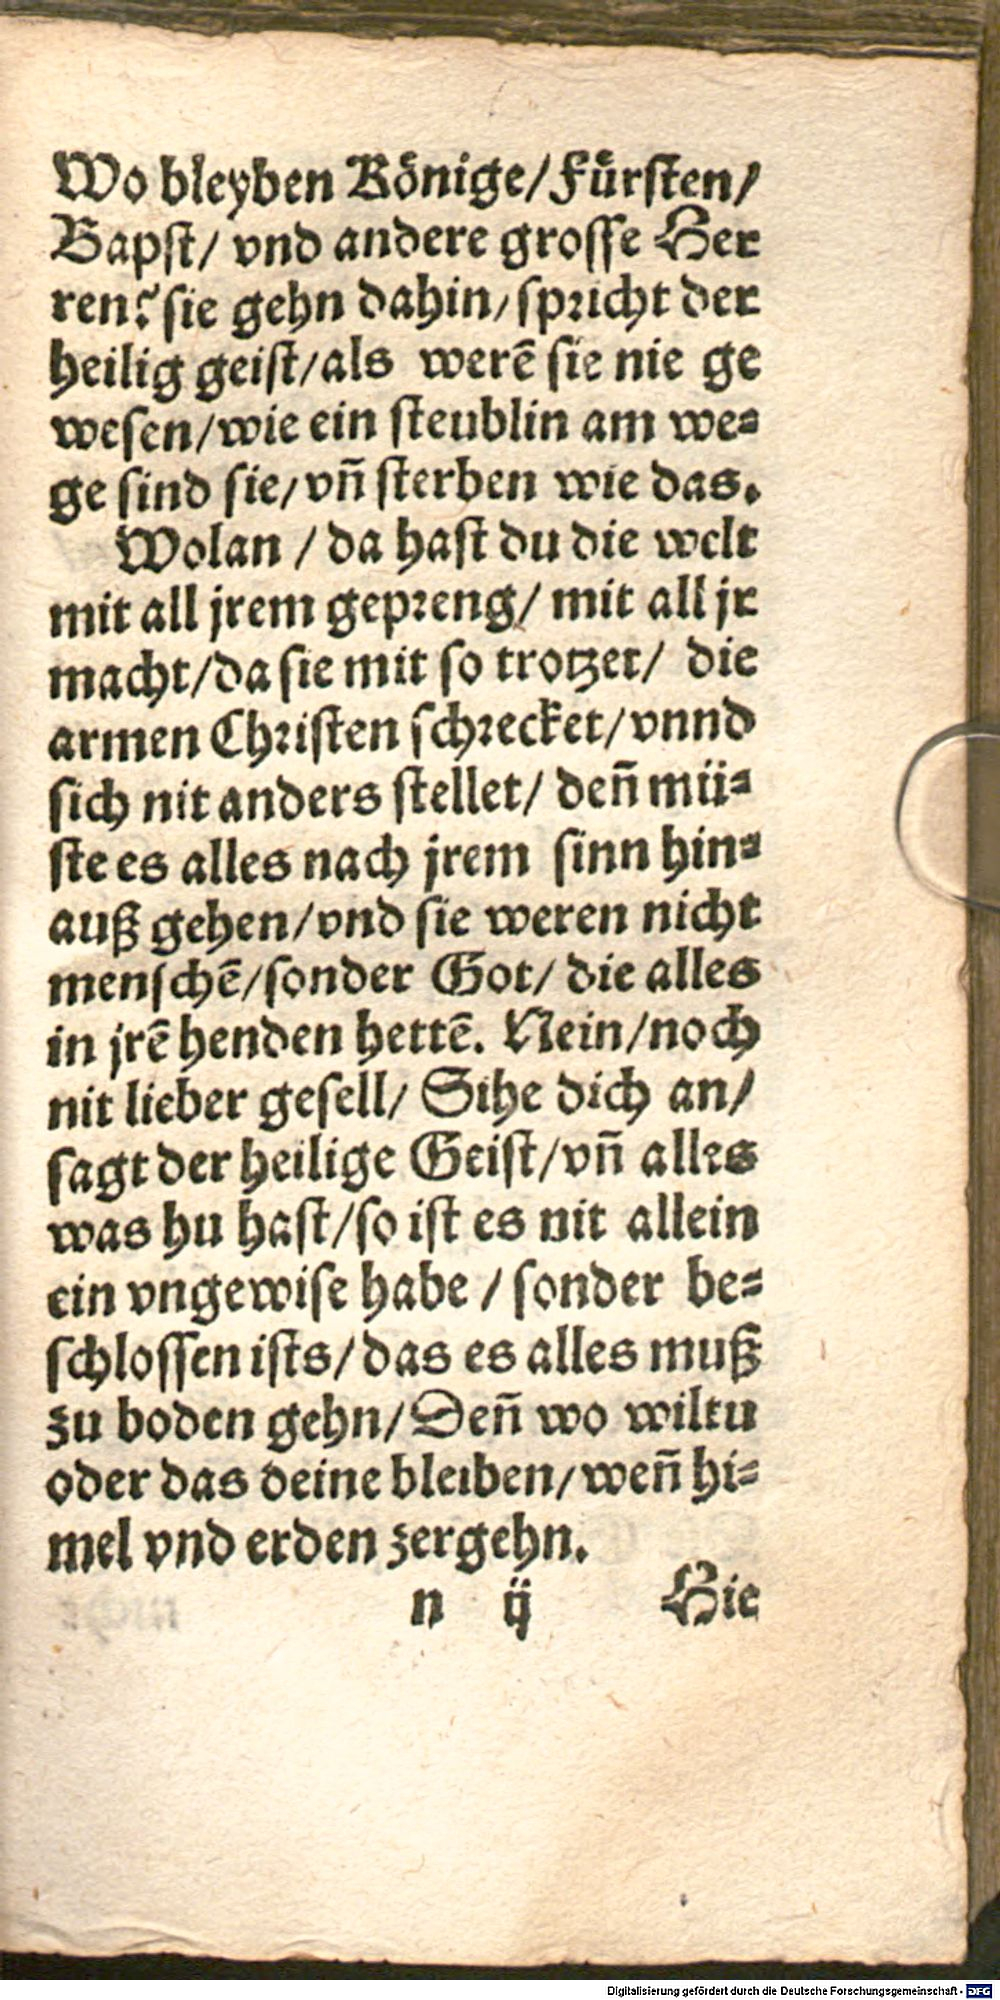 Wo bleyben Könige/Fürsten/
Bapst/ vnd andere grosse Her
ren? sie gehn dahin/spricht der
heilig geist/als werē sie nie ge
wesen/wie ein steublin am we-
ge sind sie/vñ sterben wie das.
Wolan / da hast du die welt
mit all jrem gepreng/ mit all jr
macht/da sie mit so trotzet/ die
armen Christen schrecket/vnnd
sich nit anders stellet/ deñ mü-
ste es alles nach jrem sinn hin-
auß gehen/vnd sie weren nicht
menschē/sonder Got/ die alles
in jrē henden hettē. Nein/noch
nit lieber gesell/ Sihe dich an/
sagt der heilige Geist/vñ alles
was hu hast/so ist es nit allein
ein vngewise habe / sonder be-
schlossen ists/das es alles muß
zu boden gehn/Deñ wo wiltu
oder das deine bleiben/weñ hi-
mel vnd erden zergehn.
n ij Hie
Digitalisierung gefördert durch die Deutsche Forschungsgemeinschaft - DFG